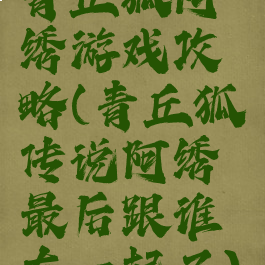 青丘狐阿
绣游戏攻
略(青丘狐
传说阿绣
最后跟谁
在一起了)